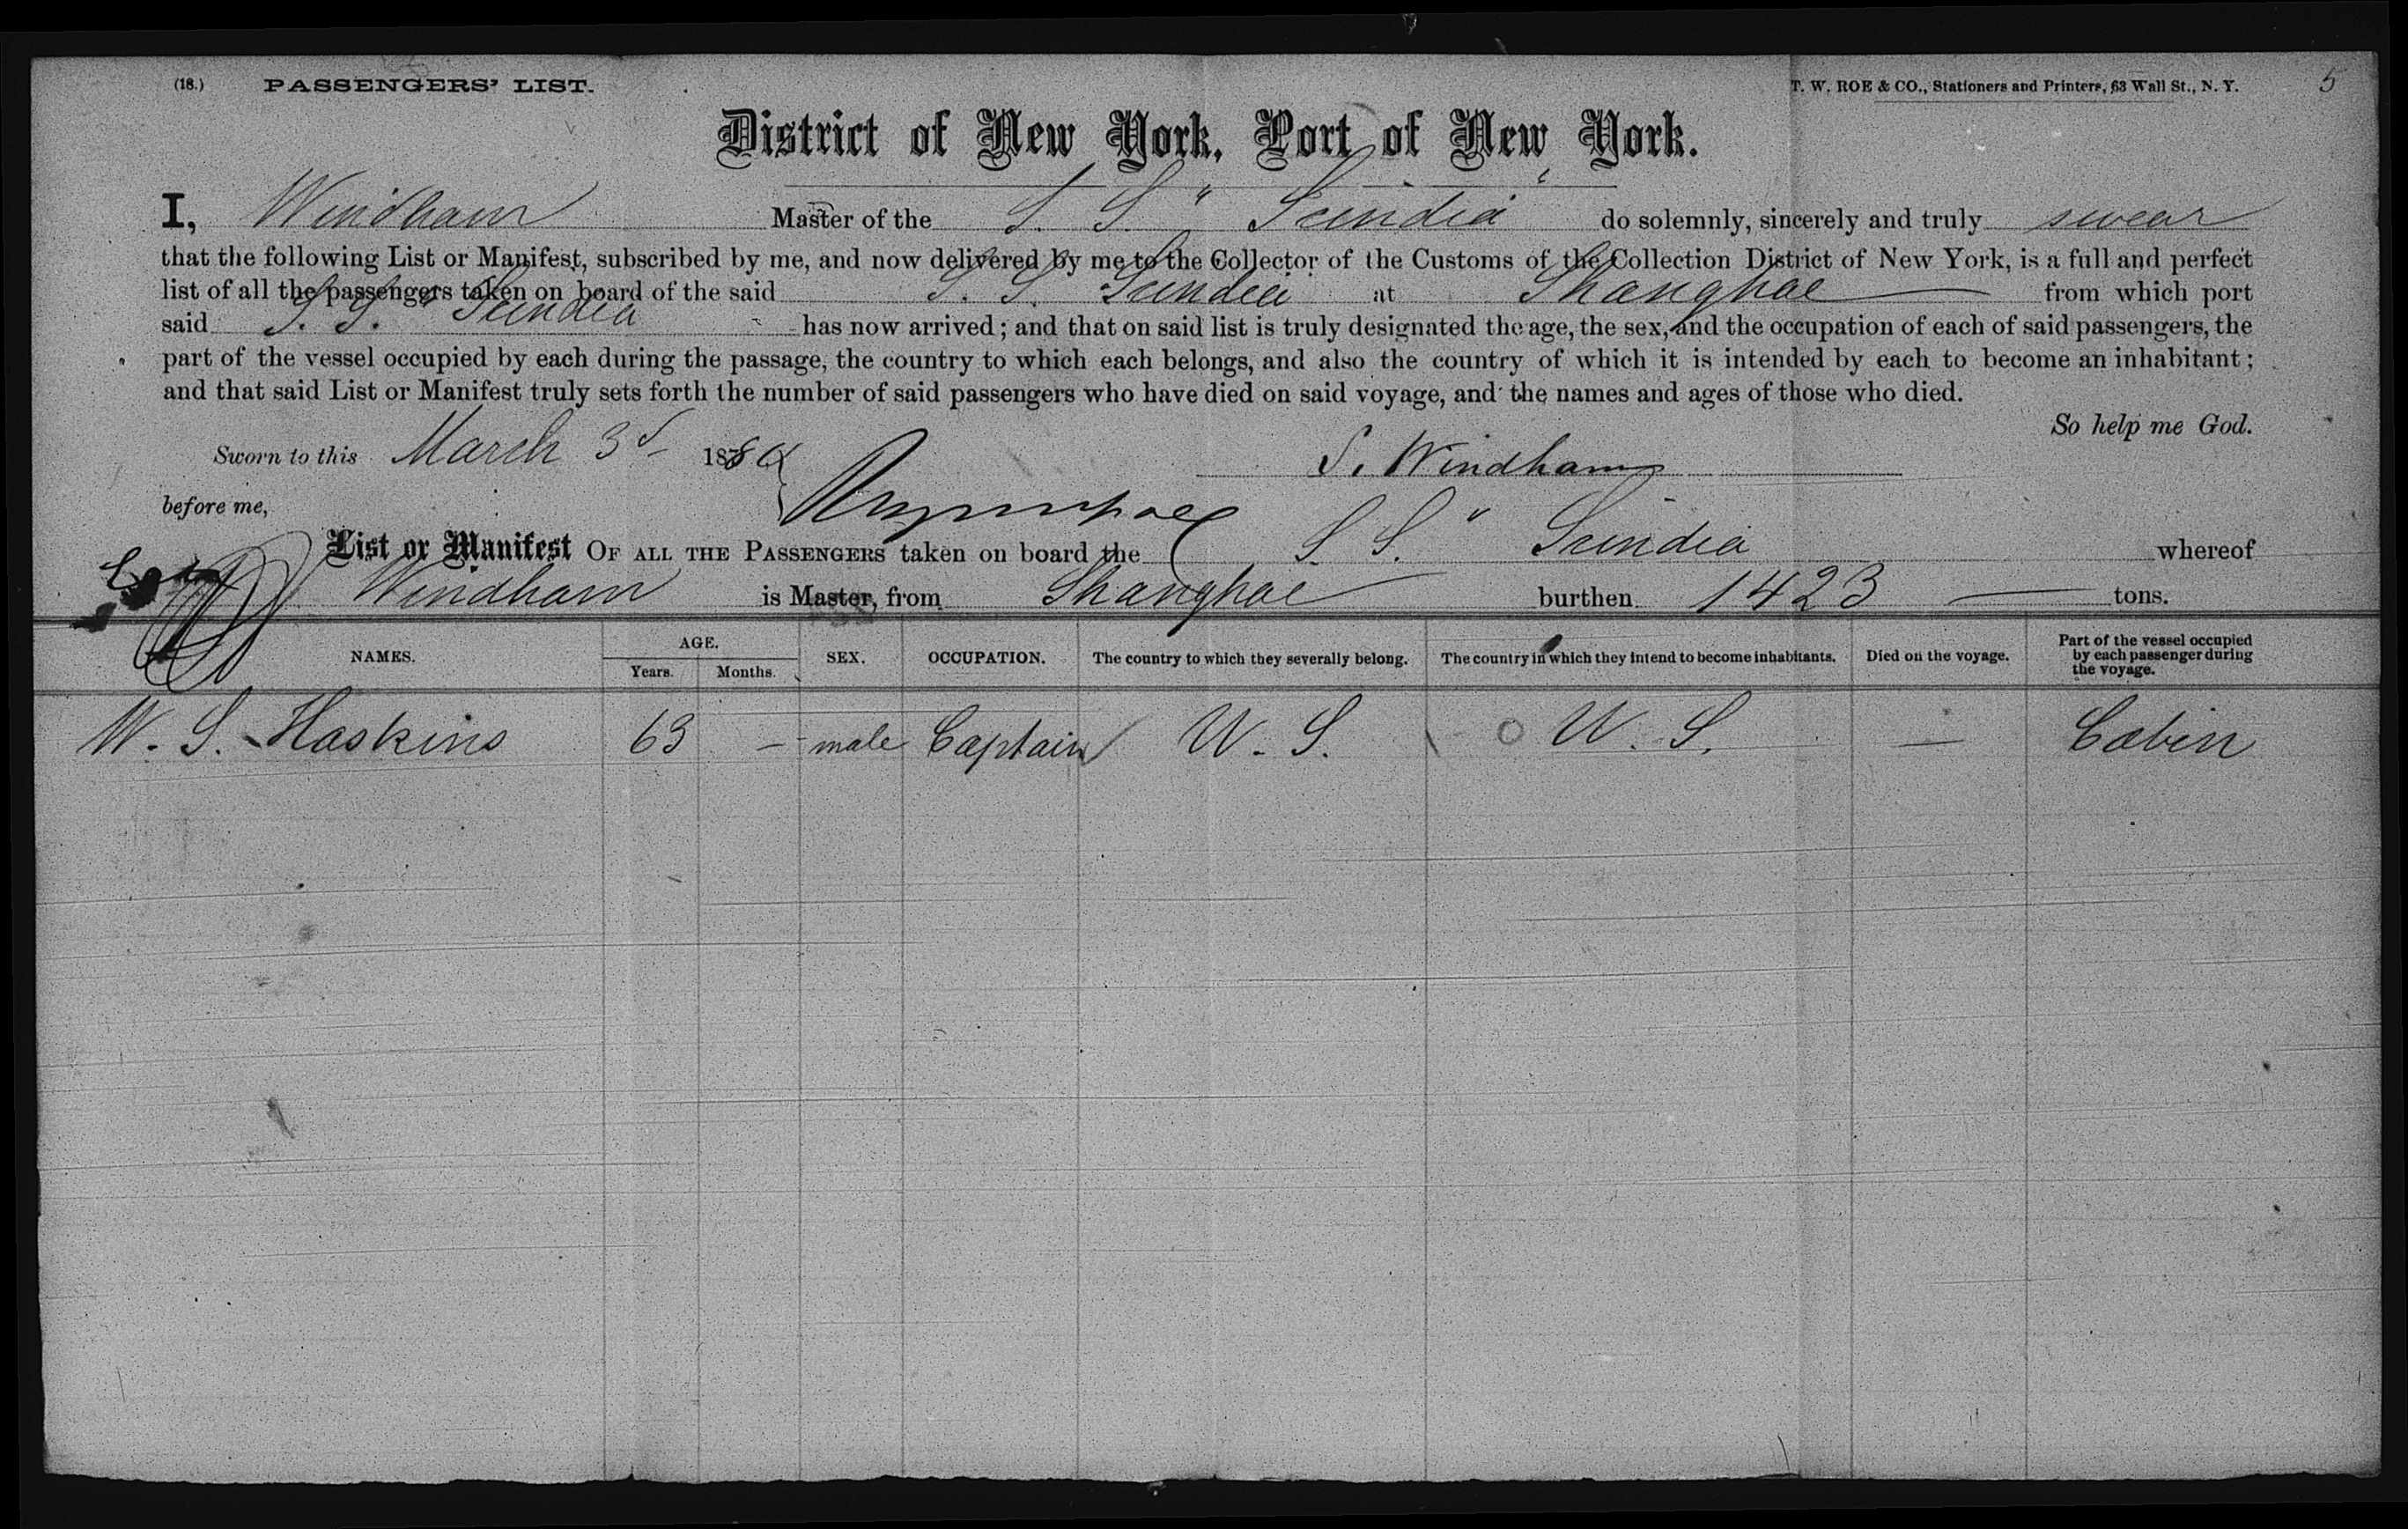 (18.) PASSENGERS' LIST. T. W. ROE & CO., Stationers and Printers, 63 Wall St., N. Y. 5
District of New York, Port of New York.
I, Windham Master of the S. S. "Scindia" do solemnly, sincerely and truly swear
that the following List or Manifest, subscribed by me, and now delivered by me to the Collector of the Customs of the Collection District of New York, is a full and perfect
list of all the passengers taken on board of the said S. S. Scindia at Shanghae from which port
said S. S. "Scindia has now arrived; and that on said list is truly designated the age, the sex, and the occupation of each of said passengers, the
part of the vessel occupied by each during the passage, the country to which each belongs, and also the country of which it is intended by each to become an inhabitant;
and that said List or Manifest truly sets forth the number of said passengers who have died on said voyage, and the names and ages of those who died.
So help me God.
Sworn to this March 3d 1880 S. Windham
before me,
List or Manifest OF ALL THE PASSENGERS taken on board the S. S. " Scindia whereof
Windham is Master, from Shanghae burthen 1423 tons.
NAMES. AGE. Years. Months. SEX. OCCUPATION. The country to which they severally belong. The country in which they intend to become inhabitants. Died on the voyage. Part of the vessel occupied by each passenger during the voyage.
W. S. Haskins 63 — male Captain U. S. O U. S. — Cabin